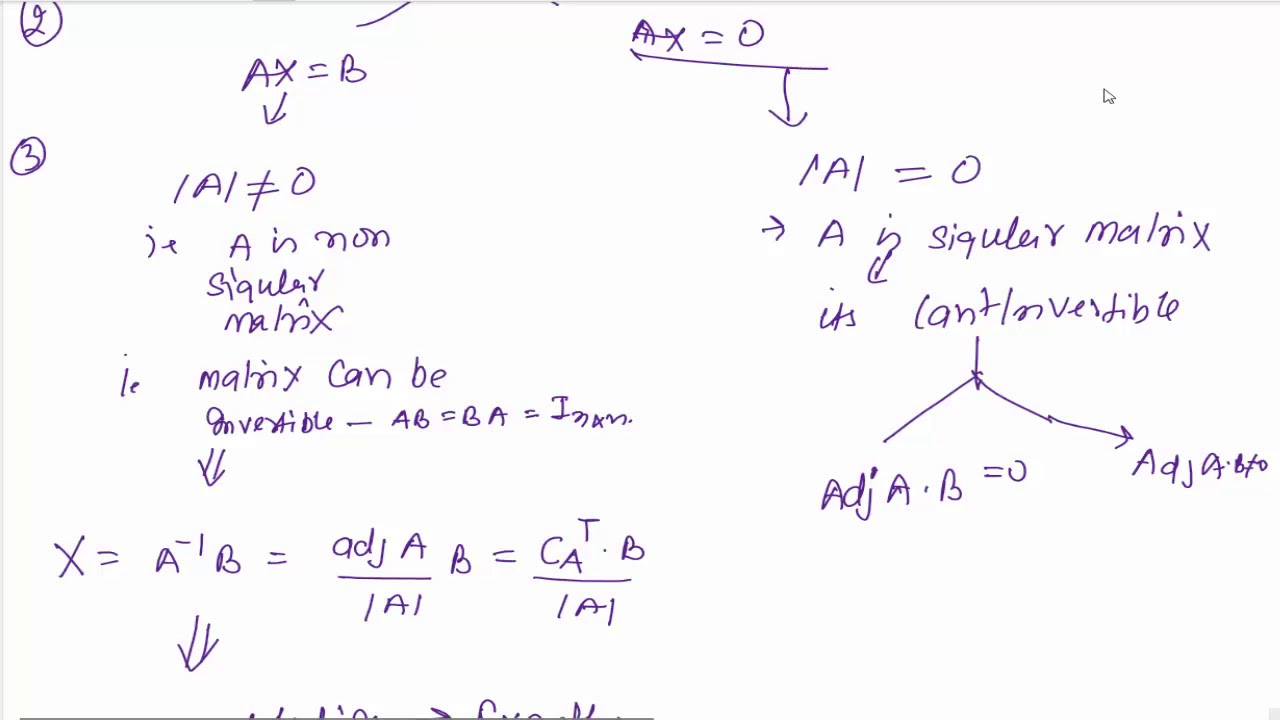 ②
AX = B
③
|A| ≠ 0
i.e A is non
sigular
matrix
i.e matrix can be
Invertible — AB = BA = I n×n.
X = A⁻¹B = adj A / |A| B = C_A^T · B / |A|
AX = 0
|A| = 0
→ A is sigular matrix
its Can't Invertible
Adj A · B = 0
Adj A · B ≠ 0